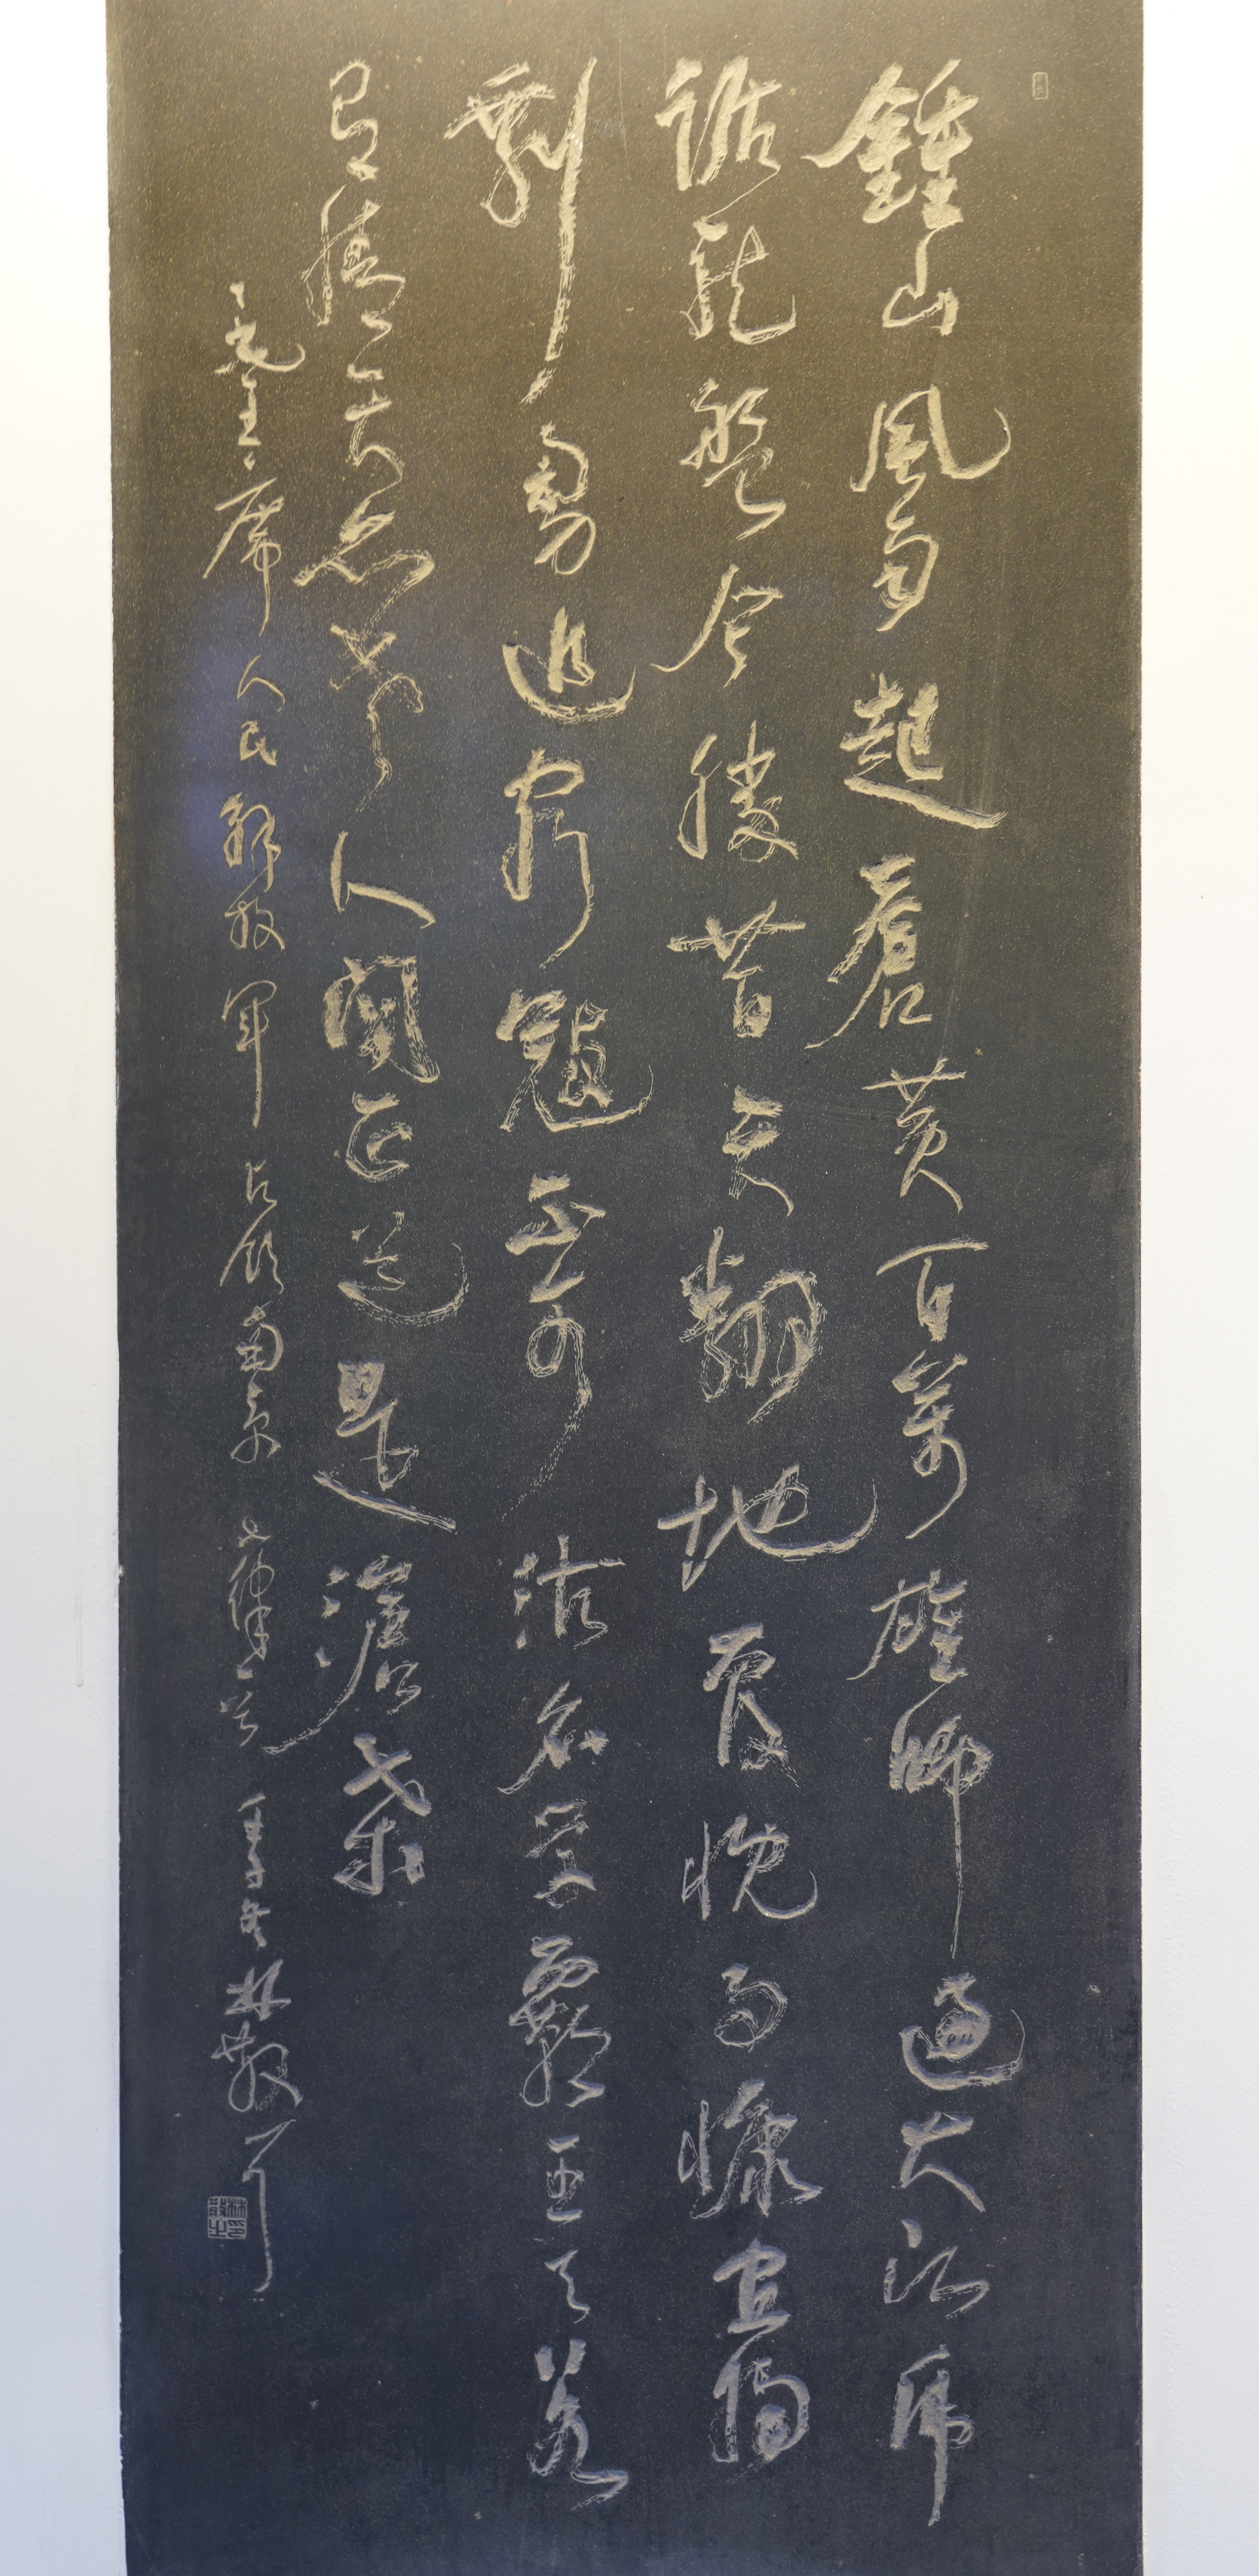 鍾山風雨起蒼黃百萬雄師過大江虎
踞龍盤今勝昔天翻地覆慨而慷宜將
剩勇追窮寇不可沽名學霸王天若
有情天亦老人間正道是滄桑
毛主席人民解放軍占領南京七律一首 冬林散耳